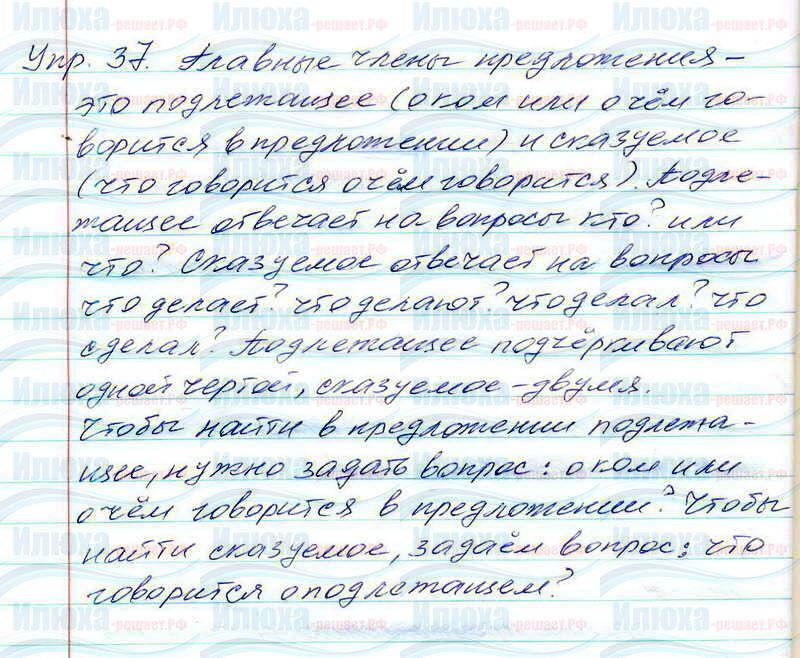 Упр. 37. Главные члены предложения –
это подлежащее (о ком или о чём го-
ворится в предложении) и сказуемое
(что говорится о чём говорится). Подле-
жащее отвечает на вопросы кто? или
что? Сказуемое отвечает на вопросы
что делает? что делают? что делал? что
сделал? Подлежащее подчёркивают
одной чертой, сказуемое – двумя.
Чтобы найти в предложении подлежа-
щее, нужно задать вопрос: о ком или
о чём говорится в предложении? Чтобы
найти сказуемое, задаём вопрос: что
говорится о подлежащем?
Илюха-решает.РФ